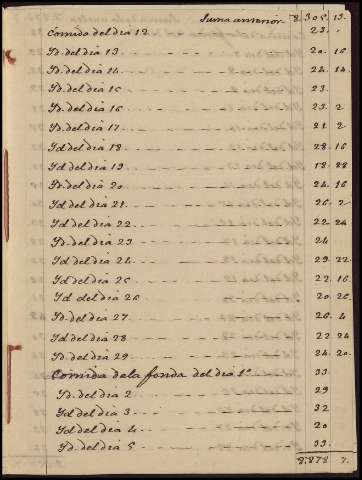 Suma anterior 8.305 13.
Comida del dia 12 23
Yd. del dia 13 20. 16
Yd. del dia 14 22. 14
Yd. del dia 15 23
Yd. del dia 16 23. 2
Yd. del dia 17 21. 2
Yd del dia 18 28. 16
Yd del dia 19 18. 28
Yd. del dia 20 24. 16
Yd del dia 21 26. 2
Yd del dia 22 22. 24
Yd. del dia 23 24
Yd del dia 24 29. 22
Yd del dia 25 22. 16
Yd del dia 26 20. 26
Yd. del dia 27 26. 4
Yd del dia 28 22 24
Yd. del dia 29 24. 20
Comida de la fonda del dia 1º 33
Yd. del dia 2 29
Yd del dia 3 32
Yd del dia 4 20
Yd. del dia 5 33
8.878 7.